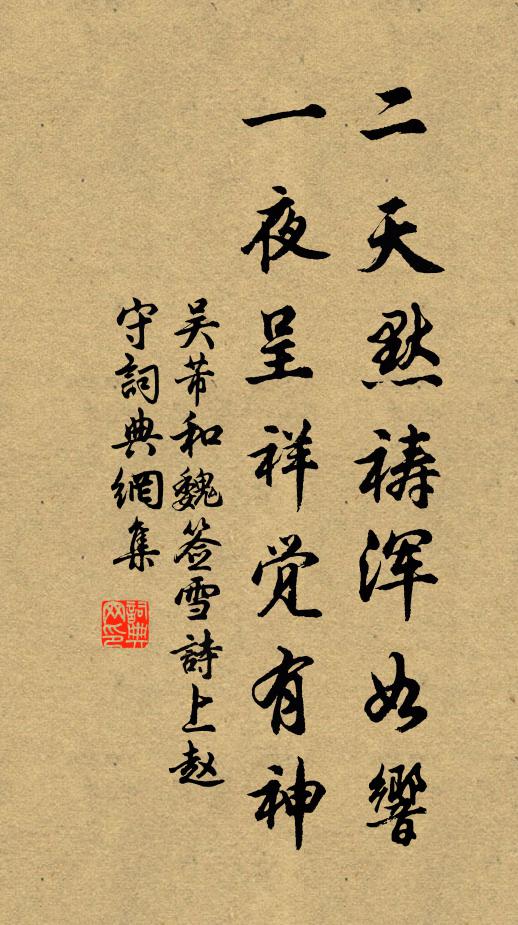 二天默祷浑如響
一夜呈祥觉有神
吴芾和魏签雪詩上赵
守詞典網集
詞典网印